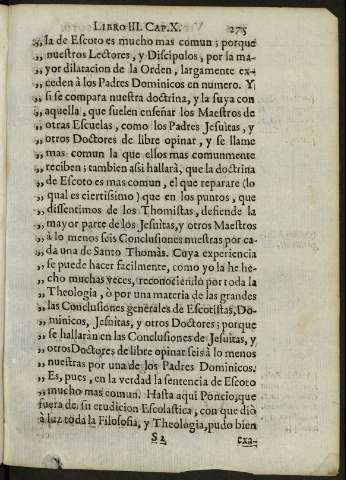 LIBRO III. CAP. X. 275
,, la de Escoto es mucho mas comun; porque
,, nuestros Lectores, y Discipulos, por la ma-
,, yor dilatacion de la Orden, largamente ex-
,, ceden à los Padres Dominicos en numero. Y
,, si se compara nuestra doctrina, y la suya con
,, aquella, que suelen enseñar los Maestros de
,, otras Escuelas, como los Padres Jesuitas, y
,, otros Doctores de libre opinar, y se llame
,, mas comun la que ellos mas comunmente
,, reciben; tambien assi hallarà, que la doctrina
,, de Escoto es mas comun, el que reparare (lo
,, qual es ciertissimo) que en los puntos, que
,, dissentimos de los Thomistas, defiende la
,, mayor parte de los Jesuitas, y otros Maestros
,, à lo menos seis Conclusiones nuestras por ca-
,, da una de Santo Thomàs. Cuya experiencia
,, se puede hacer facilmente, como yo la he he-
,, cho muchas veces, reconociendo por toda la
,, Theologia, ò por una materia de las grandes
,, las Conclusiones generales de Escotistas, Do-
,, minicos, Jesuitas, y otros Doctores; porque
,, se hallaràn en las Conclusiones de Jesuitas, y
,, otros Doctores de libre opinar seis à lo menos
,, nuestras por una de los Padres Dominicos.
,, Es, pues, en la verdad la sentencia de Escoto
,, mucho mas comun. Hasta aqui Poncio, que
fuera de su erudicion Escolastica, con que diò
à luz toda la Filosofia, y Theologia, pudo bien
S 2 exa-